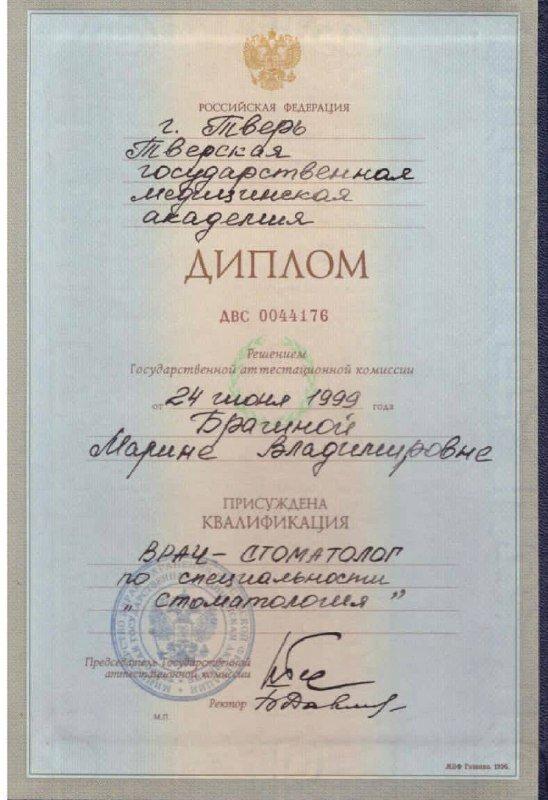 РОССИЙСКАЯ ФЕДЕРАЦИЯ
г. Тверь
Тверская
государственная
медицинская
академия
ДИПЛОМ
ДВС 0044176
Решением
Государственной аттестационной комиссии
от 24 июня 1999 года
Брагиной
Марине Владимировне
ПРИСУЖДЕНА
КВАЛИФИКАЦИЯ
ВРАЧ - СТОМАТОЛОГ
по специальности
„ стоматология ”
Председатель Государственной
аттестационной комиссии
Ректор
М.П.
МПФ Гознака. 1996.